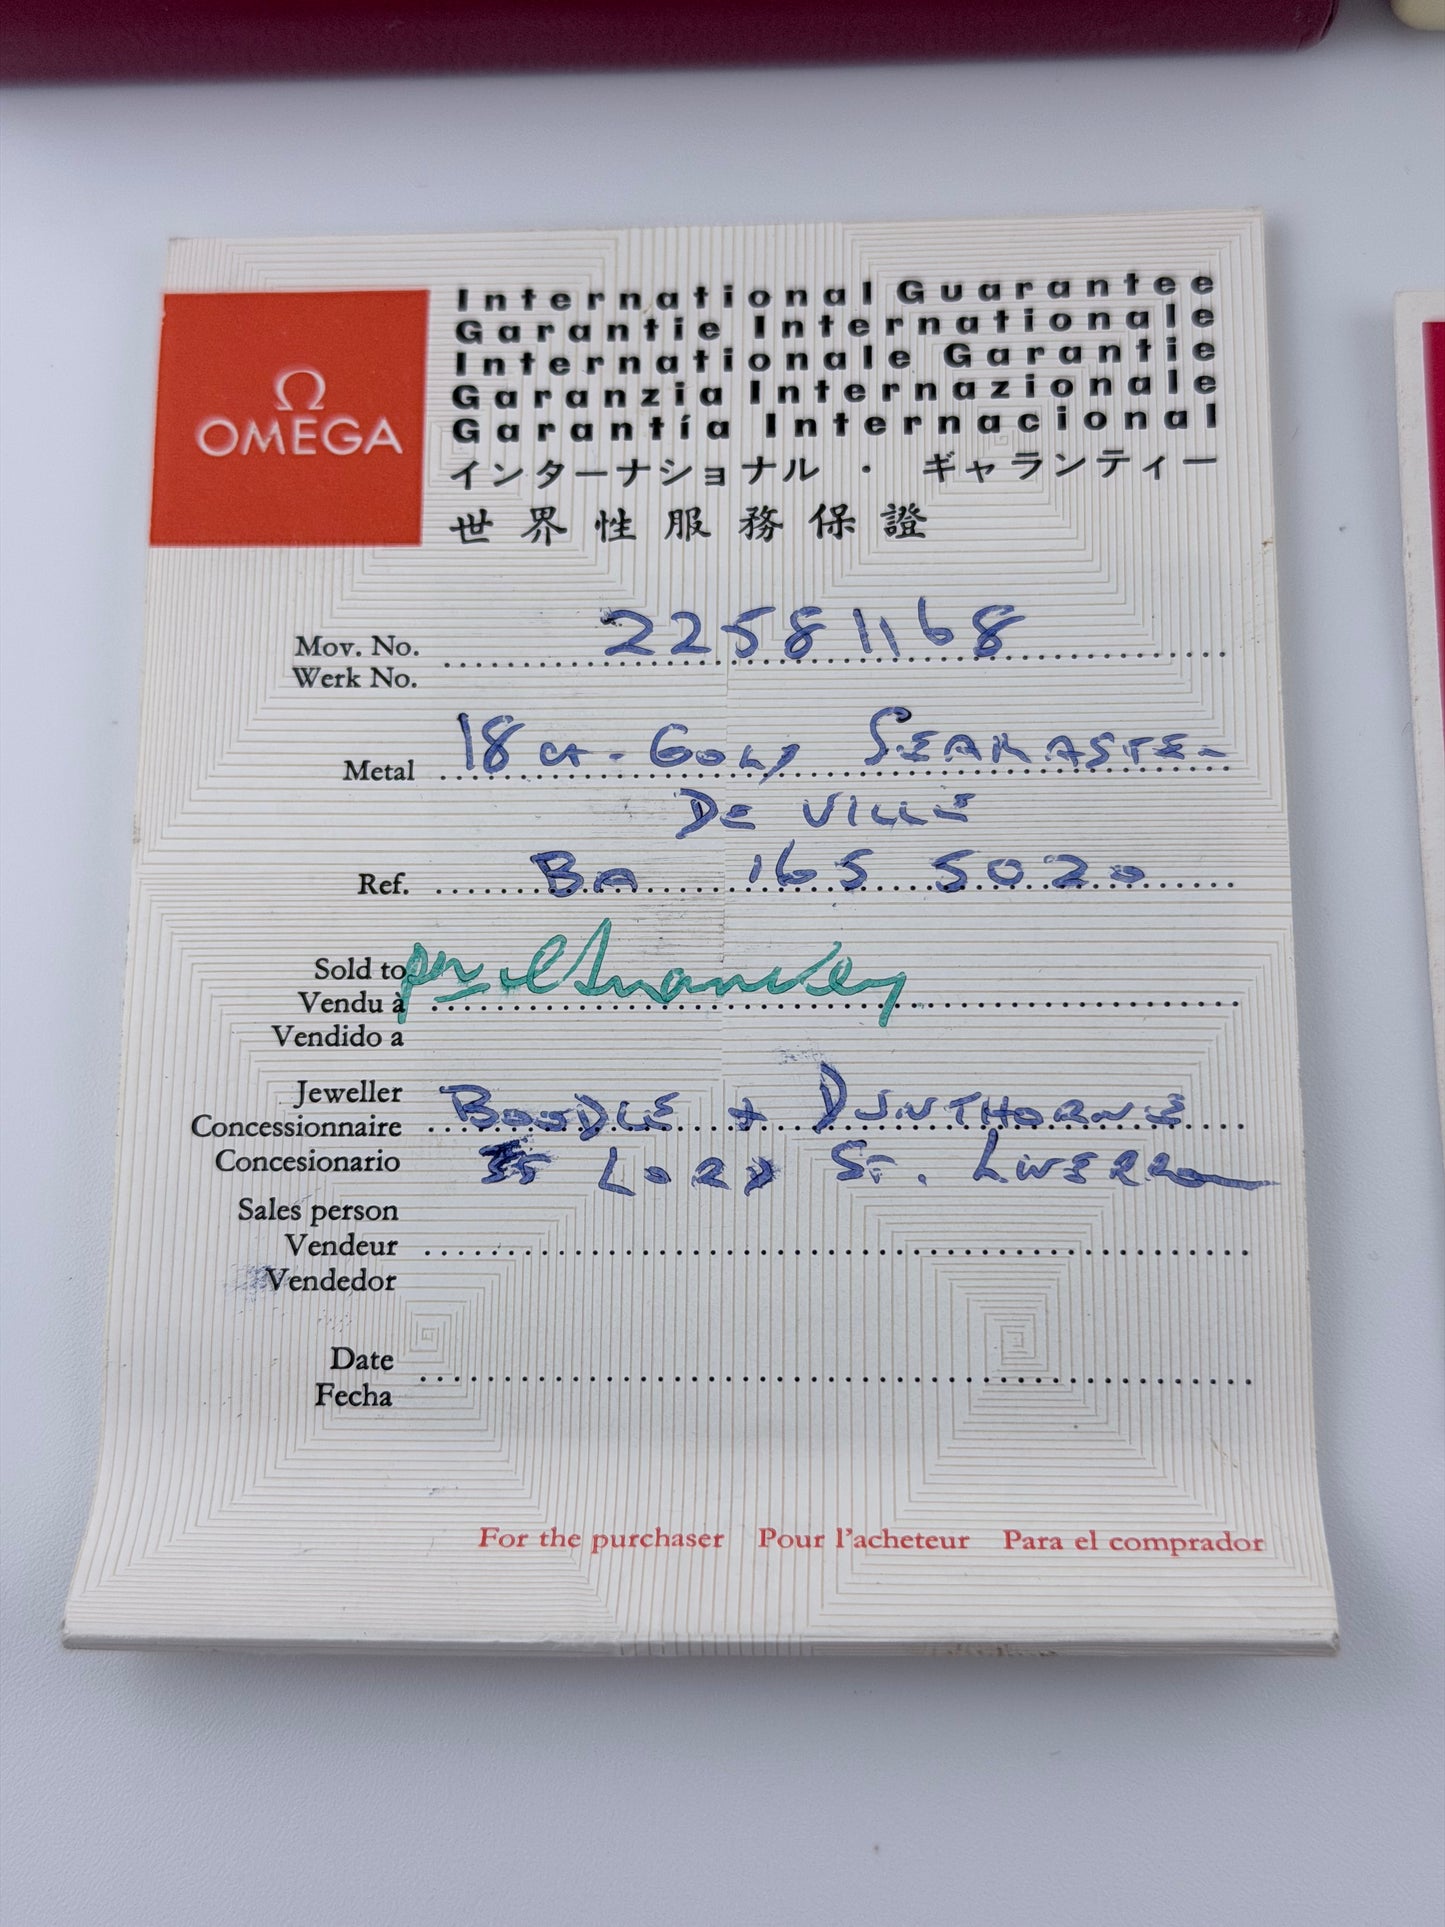 Ω
OMEGA
International Guarantee
Garantie Internationale
Internationale Garantie
Garanzia Internazionale
Garantía Internacional
インターナショナル ・ ギャランティー
世界性服務保證
Mov. No. 22581168
Werk No.
Metal 18 ct. Gold Seamaster
De Ville
Ref. BA 165 5020
Sold to
Vendu à
Vendido a
Jeweller
Concessionnaire Boodle + Dunthorne
Concesionario Lord St. Liverpool
Sales person
Vendeur
Vendedor
Date
Fecha
For the purchaser Pour l'acheteur Para el comprador